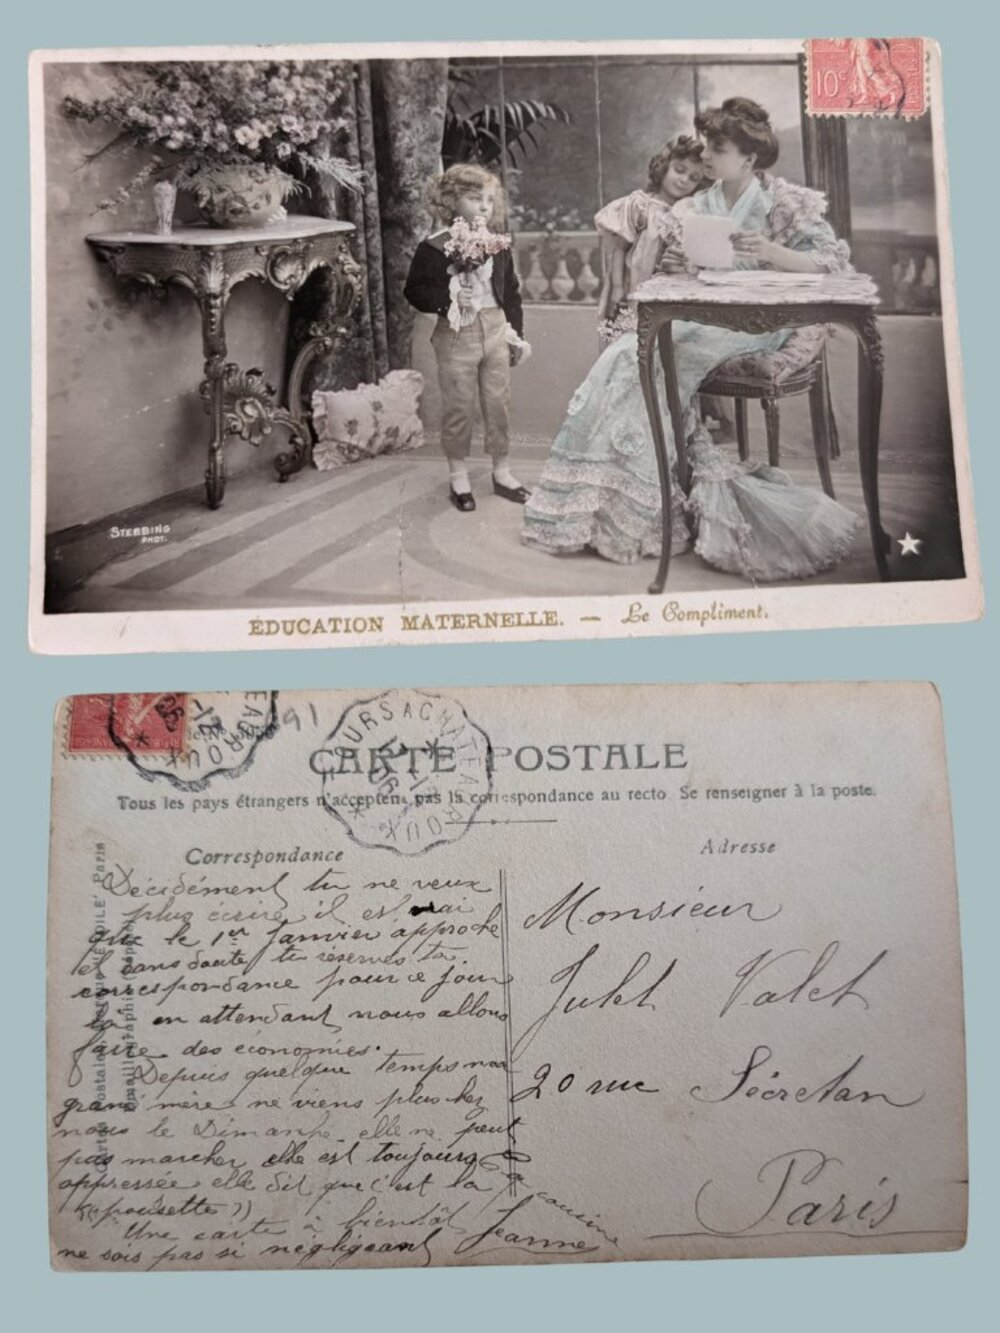 10c
STEBBING
PHOT.
ÉDUCATION MATERNELLE. — Le Compliment.
91
TOURS A CHATEAUROUX
CARTE POSTALE
Tous les pays étrangers n'acceptent pas la correspondance au recto. Se renseigner à la poste.
Correspondance
Adresse
Décidément tu ne veux
plus écrire il est vrai
que le 1er Janvier approche
et sans doute tu réserves ta
correspondance pour ce jour
en attendant nous allons
faire des économies.
Depuis quelque temps
grand mère ne viens plus chez
nous le Dimanche elle ne peut
pas marcher elle est toujours
oppressée elle dit que c'est la
"pousette"
Une carte à bientôt
ne sois pas si négligeant
Ta cousine
Jeanne
Monsieur
Valet
20 rue Sécretan
Paris
Cartes Postales, Marque "ÉTOILE" Paris